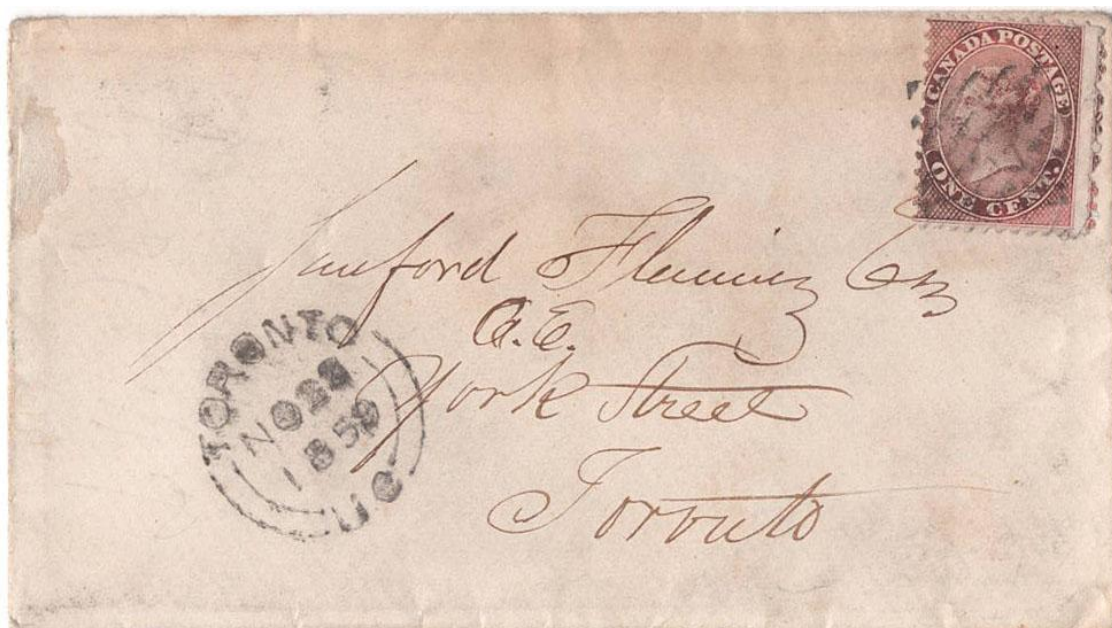 CANADA POSTAGE
ONE CENT.
Sanford Fleming Esq
C.E.
York Street
Toronto
TORONTO
NO 22
1859
U.C